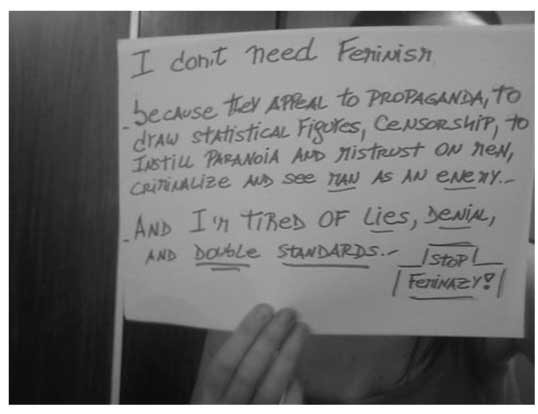 I don't need Feminism
- because they APPEAL to PROPAGANDA, to
draw statistical Figures, Censorship, to
Instill Paranoia and mistrust on men,
criminalize and see man as an enemy.-
- And I'm tired of lies, denial,
and double standards.-
Stop!
Feminazy!